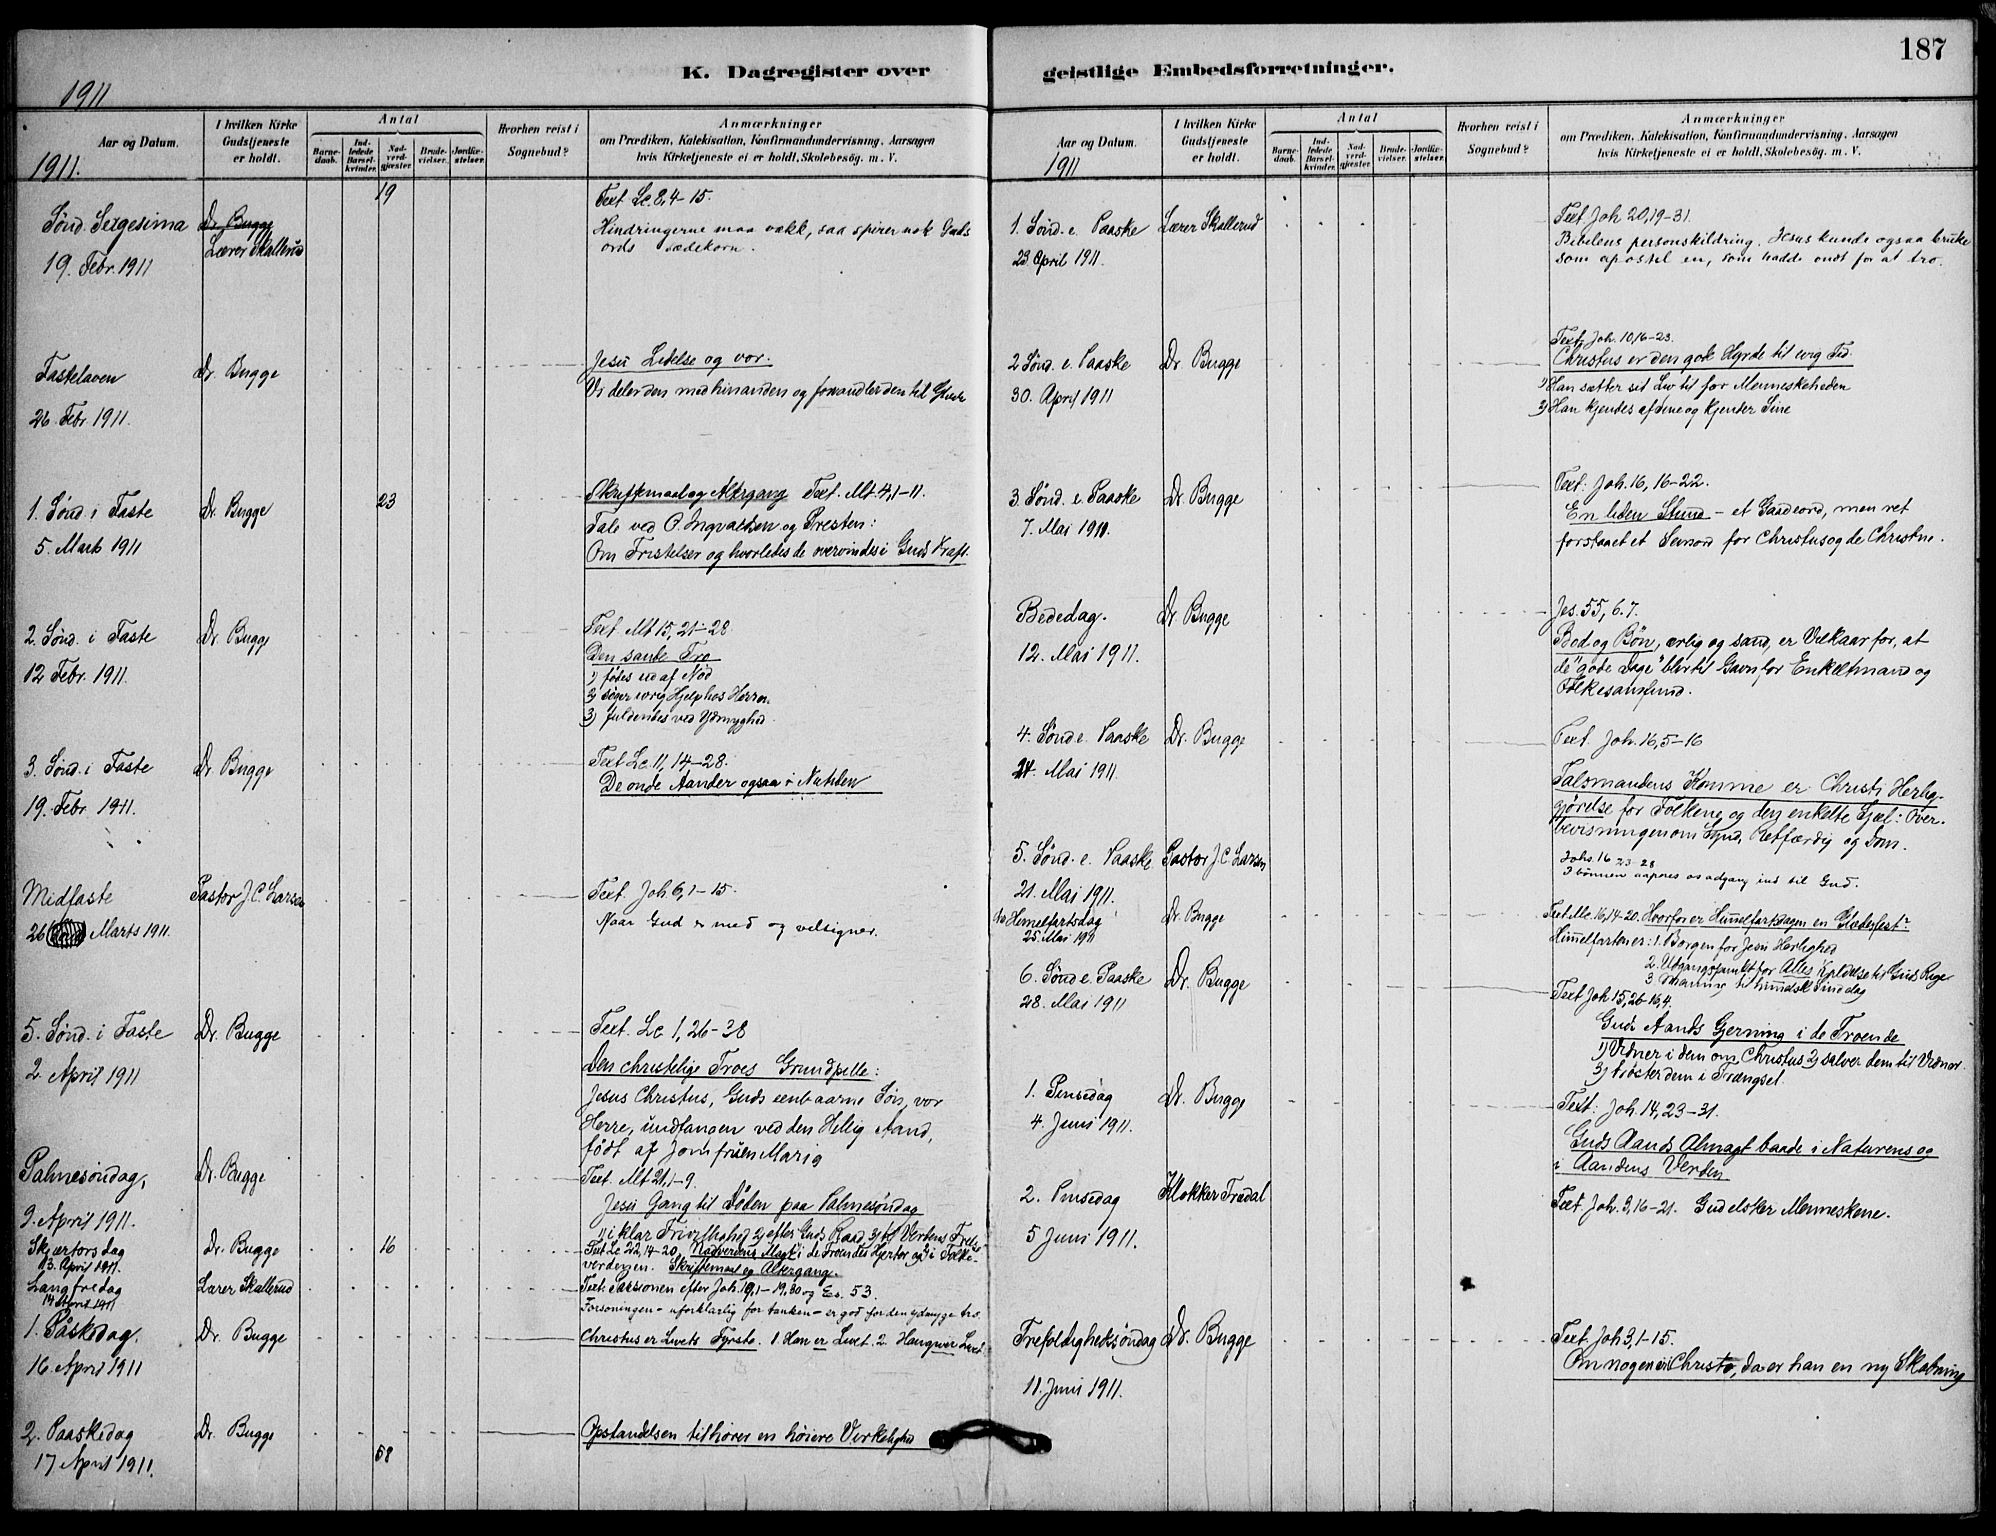 187
K. Dagregister over
geistlige Embedsforretninger.
1911
Aar og Datum.
I hvilken Kirke
Gudstjeneste
er holdt.
Antal
Barne-
daab.
Ind-
ledede
Barsel-
kvinder.
Nad-
verd-
gjester.
Brude-
vielser.
Jordfæ-
stelser.
Hvorhen reist i
Sognebud?
Anmærkninger
om Prædiken, Katekisation, Konfirmandundervisning, Aarsagen
hvis Kirketjeneste ei er holdt, Skolebesøg. m. V.
1911.
19
Sønd. Sexgesima
19. Febr. 1911
Dr. Bugge
Lærer Skallerud
Text Lc. 8, 4-15.
Hindringerne maa vækk, saa spirer nok Guds
ords sædekorn.
Fastelaven
26 Febr. 1911.
Dr. Bugge
Jesu Lidelse og vor.
Vi deler den med hinanden og forvandler den til Glæde
1. Sønd. i Faste
5. Marts 1911
Dr. Bugge
23
Skriftemaal og Altergang Text. Mt. 4, 1-11.
Tale ved O. Ingvaldsen og Presten:
Om Fristelser og hvorledes de overvindes i Guds Kraft.
2. Sønd. i Faste
12 Febr. 1911.
Dr. Bugge
Text. Mt 15, 21-28
Den sande Tro
1) fødes ud af Nød
2) søger ivrig Hjelp hos Herren
3) fuldendes ved Ydmyghed.
3. Sønd. i Faste
19. Febr. 1911.
Dr. Bugge
Text Lc. 11, 14-28.
De onde Aander ogsaa i Nutiden
Midfaste
26 Marts 1911.
Pastor J. C. Larsen
Text. Joh. 6, 1-15.
Naar Gud er med og velsigner.
5. Sønd. i Faste
2. April 1911
Dr. Bugge
Text. Lc. 1, 26-38
Den christelige Troes Grundpille:
Jesus Christus, Guds eenbaarne Søn, vor
Herre, undfangen ved den Hellig Aand,
født af Jomfruen Maria
Palmesøndag,
9. April 1911.
Dr. Bugge
Text. Mt 21, 1-9.
Jesu Gang til Døden paa Palmesøndag
1) i klar Frivillighed 2) efter Guds Raad 3) til Verdens Frelse
Skjærtorsdag
13. April 1911.
Dr. Bugge
16
Text Lc 22, 14-20. Nadverens Magt i de Troendes Hjerter og i Folke-
verdenen. Skriftemaal og Altergang.
Langfredag
14 April 1911
Lærer Skallerud
Text: Passionen efter Joh. 19, 1-19, 30 og Es. 53.
Forsoningen - uforklarlig for tanken - er god for den ydmyge tro.
1. Påskedag.
16. April 1911
Dr. Bugge
Christus er Livets Fyrste. 1 Han er Livet. 2. Han giver Livet
2. Paaskedag
17 April 1911.
Dr. Bugge
58
Opstandelsen tilhører en høiere Virkelighed
Aar og Datum.
I hvilken Kirke
Gudstjeneste
er holdt.
Antal
Barne-
daab.
Ind-
ledede
Barsel-
kvinder.
Nad-
verd-
gjester.
Brude-
vielser.
Jordfæ-
stelser.
Hvorhen reist i
Sognebud?
Anmærkninger
om Prædiken, Katekisation, Konfirmandundervisning, Aarsagen
hvis Kirketjeneste ei er holdt, Skolebesøg. m. V.
1911
1. Sønd. e. Paaske
23. April 1911.
Lærer Skallerud
Text. Joh 20, 19-31.
Bibelens personskildring. Jesus kunde ogsaa bruke
som apostel en, som hadde ondt for at tro.
2 Sønd. e. Paaske
30. April 1911
Dr. Bugge
Text. Joh. 10, 16-23.
Christus er den gode Hyrde til evig Tid.
1) Han sætter sit Liv til for Menneskeheden
2) Han kjendes af sine og kjender Sine
3. Sønd. e. Paaske
7. Mai 1911.
Dr. Bugge
Text: Joh. 16, 16-22.
En liden Stund - et Gaadeord, men ret
forstaaet et for Christus og de Christne.
Bededag.
12. Mai 1911.
Dr. Bugge
Jes. 55, 6. 7.
Bod og Bøn, ærlig og sand, er Vilkaar for, at
de "gode Dage" blir til Gavn for Enkeltmand og
Folkesamfund.
4. Sønd e. Paaske
14. Mai 1911.
Dr. Bugge
Text. Joh. 16, 5-16
Talsmandens Komme er Christi Herlig-
gjørelse for Folkene og den enkelte Sjæl: Over-
bevisningen om Synd, Retfærdig og Dom.
5. Sønd. e. Paaske
21. Mai 1911.
Pastor J. C. Larsen
Johs. 16 23-28
I bønnen aapnes os adgang ind til Gud.
Himelfartsdag
25. Mai 1911
Dr. Bugge
Text Mc. 16, 14-20. Hvorfor er Himmelfartsdagen en Glædesfest?
Himmelfarten er: 1. Borgen for Jesu Herlighed
2. Udgangspunkt for Alles Kaldelse til Guds Rige
3 til himmelsk Sinddag
6. Sønd e. Paaske
28. Mai 1911
Dr. Bugge
Text Joh 15, 26-16, 4.
Guds Aands Gjerning i de Troende
1) Vidner i dem om Christus 2) salver dem til Vidner
3) trøster dem i Trængsel.
1. Pinsedag
4. Juni 1911.
Dr. Bugge
Text: Joh. 14, 23-31.
Guds Aands Almagt baade i Naturens og
i Aandens Verden
2. Pinsedag
5 Juni 1911.
Klokker Fredal
Text. Joh. 3, 16-21. Gud elsker Menneskene.
Trefoldighedssøndag
11. Juni 1911.
Dr. Bugge
Text. Joh 3, 1-15.
Om nogen er i Christo, da er han en ny Skabning